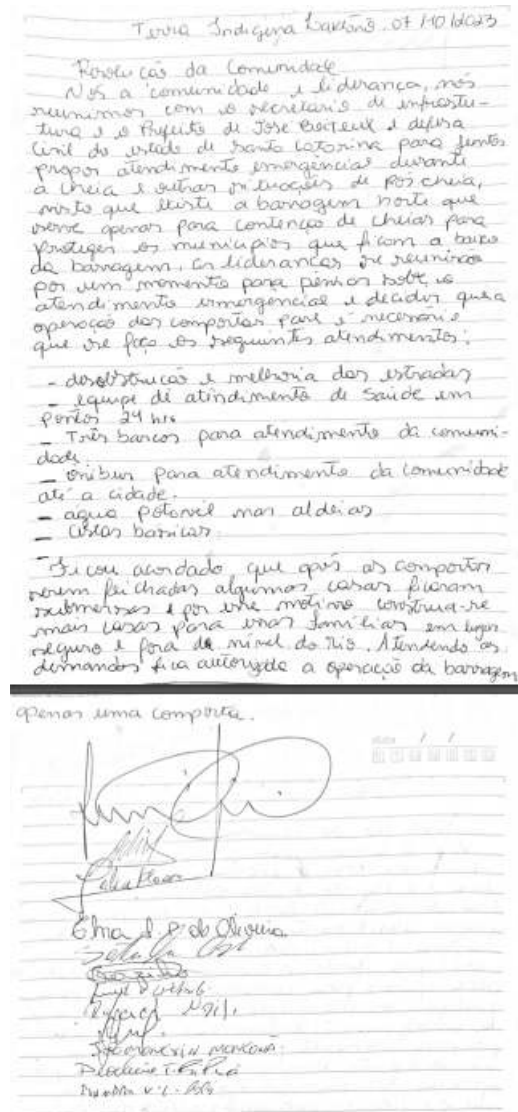 Terra Indígena Laklãnõ. 07/10/2023
Resolução da Comunidade
Nós a comunidade e liderança, nós
reunimos com o secretario de infraestu-
tura e o Prefeito de José Boiteux e defesa
Civil do estado de Santa Catarina para juntos
propor atendimento emergencial durante
a cheia e outras situações de pós cheia,
visto que existe a barragem norte que
serve apenas para contenção de cheias para
proteger os municipios que ficam a baixo
da barragem. As lideranças se reuniram
por um momento para pensar sobre o
atendimento emergencial e decidir que a
operação das comportas para é necessário
que se faça os seguintes atendimentos:
- desobstrução e melhoria das estradas
- equipe de atendimento de saúde em
pontos 24 hrs
- Três barcos para atendimento da comuni-
dade.
- onibus para atendimento da comunidade
até a cidade.
- agua potavel nas aldeias
- cestas basicas.
-
Ficou acordado que após as comportas
serem feichadas algumas casas ficaram
submersas e por esse motivo construa-se
mais casas para essas familias em lugar
seguro e fora do nivel do rio. Atendendo as
demandas fica autorizado a operação da barragem
apenas uma comporta.
Elna de Oliveira